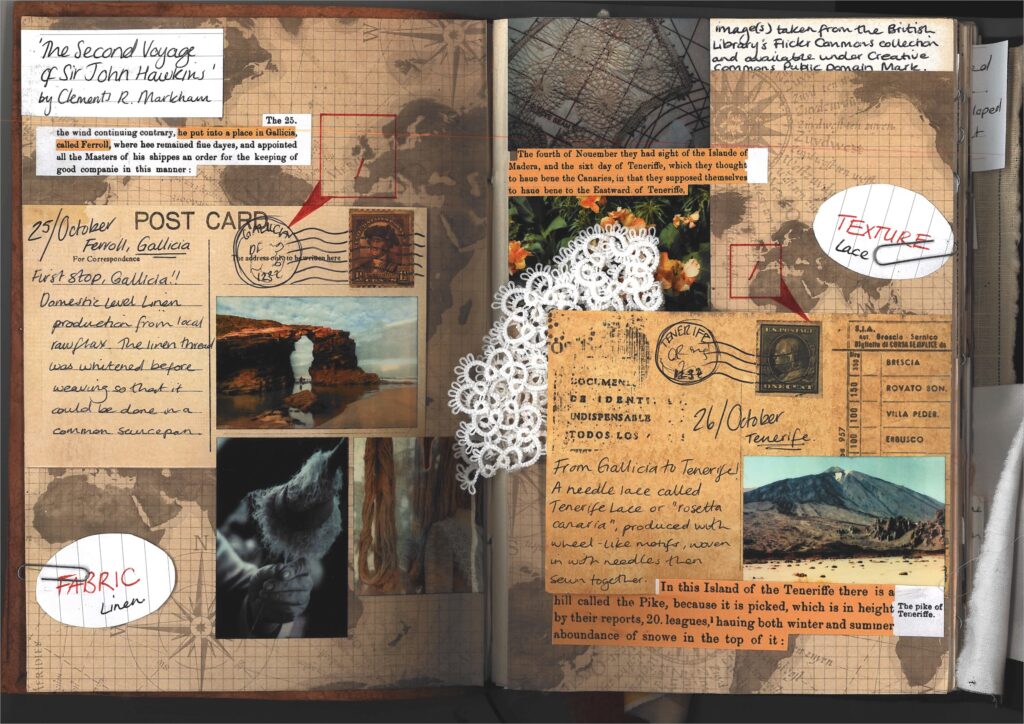 'The Second Voyage
of Sir John Hawkins'
by Clements R. Markham
The 25.
the wind continuing contrary, he put into a place in Gallicia,
called Ferroll, where hee remained fiue dayes, and appointed
all the Masters of his shippes an order for the keeping of
good companie in this manner :
25/October
POST CARD
Ferroll, Gallicia
For Correspondence
The address only to be written here
GALLICIA
First stop, Gallicia!!
Domestic level linen
production from local
raw flax. The linen thread
was whitened before
weaving so that it
could be done in a
common saucepan.
FABRIC
Linen
image(s) taken from the British
Library's Flickr Commons collection
and available under Creative
Commons Public Domain Mark.
The fourth of Nouember they had sight of the Islande of
Madera, and the sixt day of Teneriffe, which they thought
to haue bene the Canaries, in that they supposed themselves
to haue bene to the Eastward of Teneriffe.
TEXTURE
Lace
TENERIFE
U.S. POSTAGE
ONE CENT
S.I.A.
aut. Brescia - Sarnico
Biglietto di CORSA SEMPLICE da
BRESCIA
ROVATO BON.
VILLA PEDER.
ERBUSCO
DOCUMEN
DE IDENTI
INDISPENSABLE
TODOS LOS
26/October
Tenerife
From Gallicia to Tenerife!
A needle lace called
Tenerife Lace or "rosetta
canaria", produced with
wheel-like motifs, woven
in with needles then
sewn together.
In this Island of the Teneriffe there is a
hill called the Pike, because it is picked, which is in height
by their reports, 20. leagues,¹ hauing both winter and summer
aboundance of snowe in the top of it :
The pike of
Teneriffe.